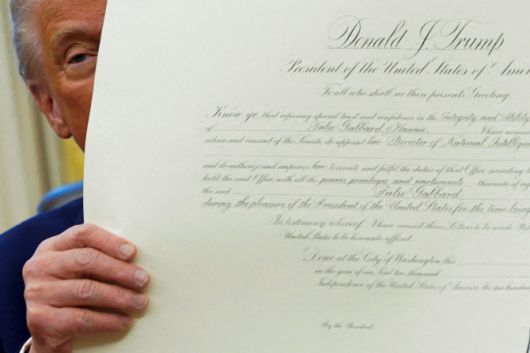 Donald J. Trump
President of the United States of Amer
To all who shall see these presents, Greeting
Know ye, that reposing special trust and confidence in the Integrity and Ability
of Tulsi Gabbard of Hawaii, I have nomin
advice and consent of the Senate do appoint her Director of National Intellige
and do authorize and empower her to execute and fulfil the duties of that Office according to
hold the said Office, with all the powers, privileges, and emoluments thereunto of
the said Tulsi Gabbard
during the pleasure of the President of the United States for the time being
In testimony whereof, I have caused these Letters to be made Pat
United States to be hereunto affixed.
Done at the City of Washington this
in the year of our Lord two thousand
Independence of the United States of America the two hundre
By the President: